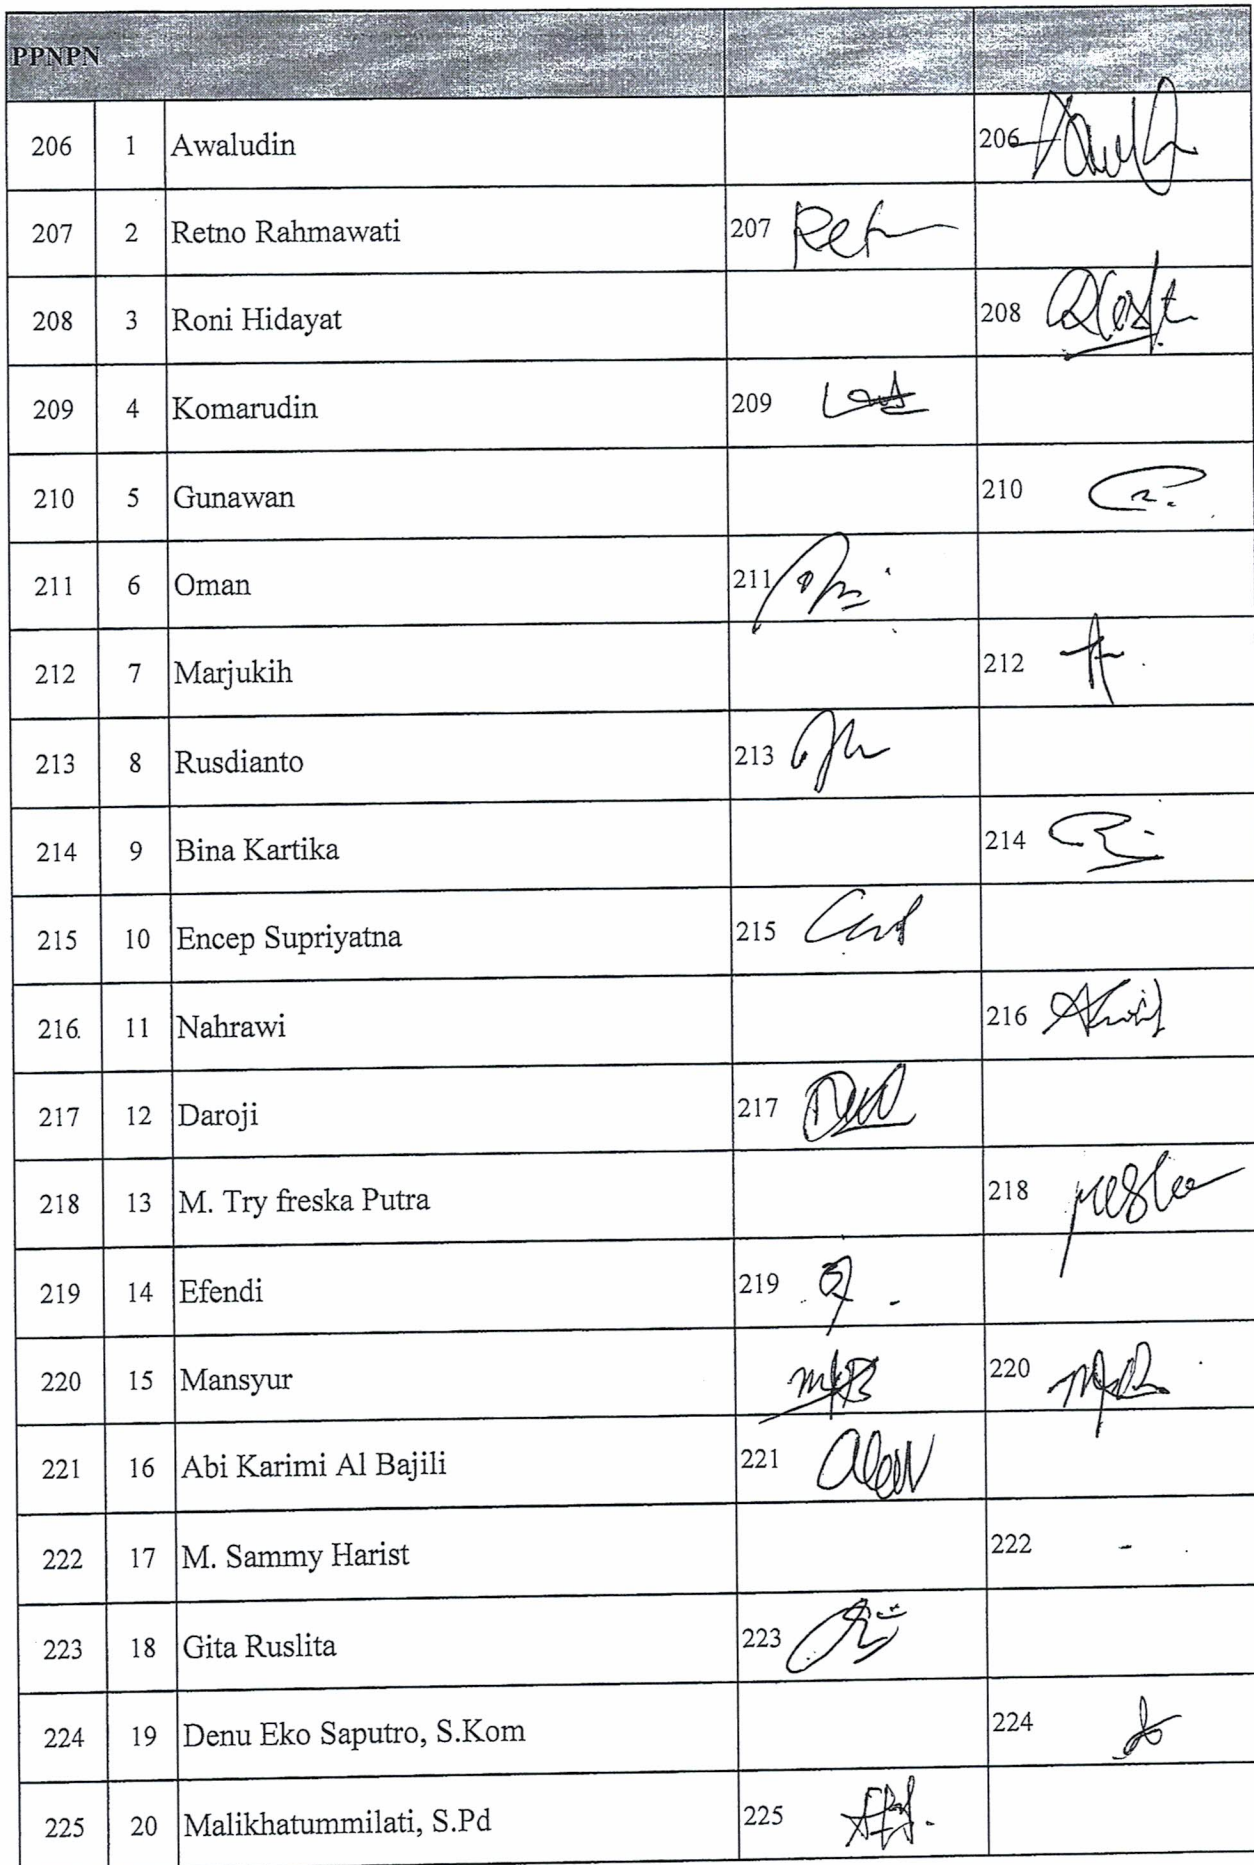 PPNPN
206 1 Awaludin 206
207 2 Retno Rahmawati 207
208 3 Roni Hidayat 208
209 4 Komarudin 209
210 5 Gunawan 210
211 6 Oman 211
212 7 Marjukih 212
213 8 Rusdianto 213
214 9 Bina Kartika 214
215 10 Encep Supriyatna 215
216 11 Nahrawi 216
217 12 Daroji 217
218 13 M. Try freska Putra 218
219 14 Efendi 219
220 15 Mansyur 220
221 16 Abi Karimi Al Bajili 221
222 17 M. Sammy Harist 222 -
223 18 Gita Ruslita 223
224 19 Denu Eko Saputro, S.Kom 224
225 20 Malikhatummilati, S.Pd 225